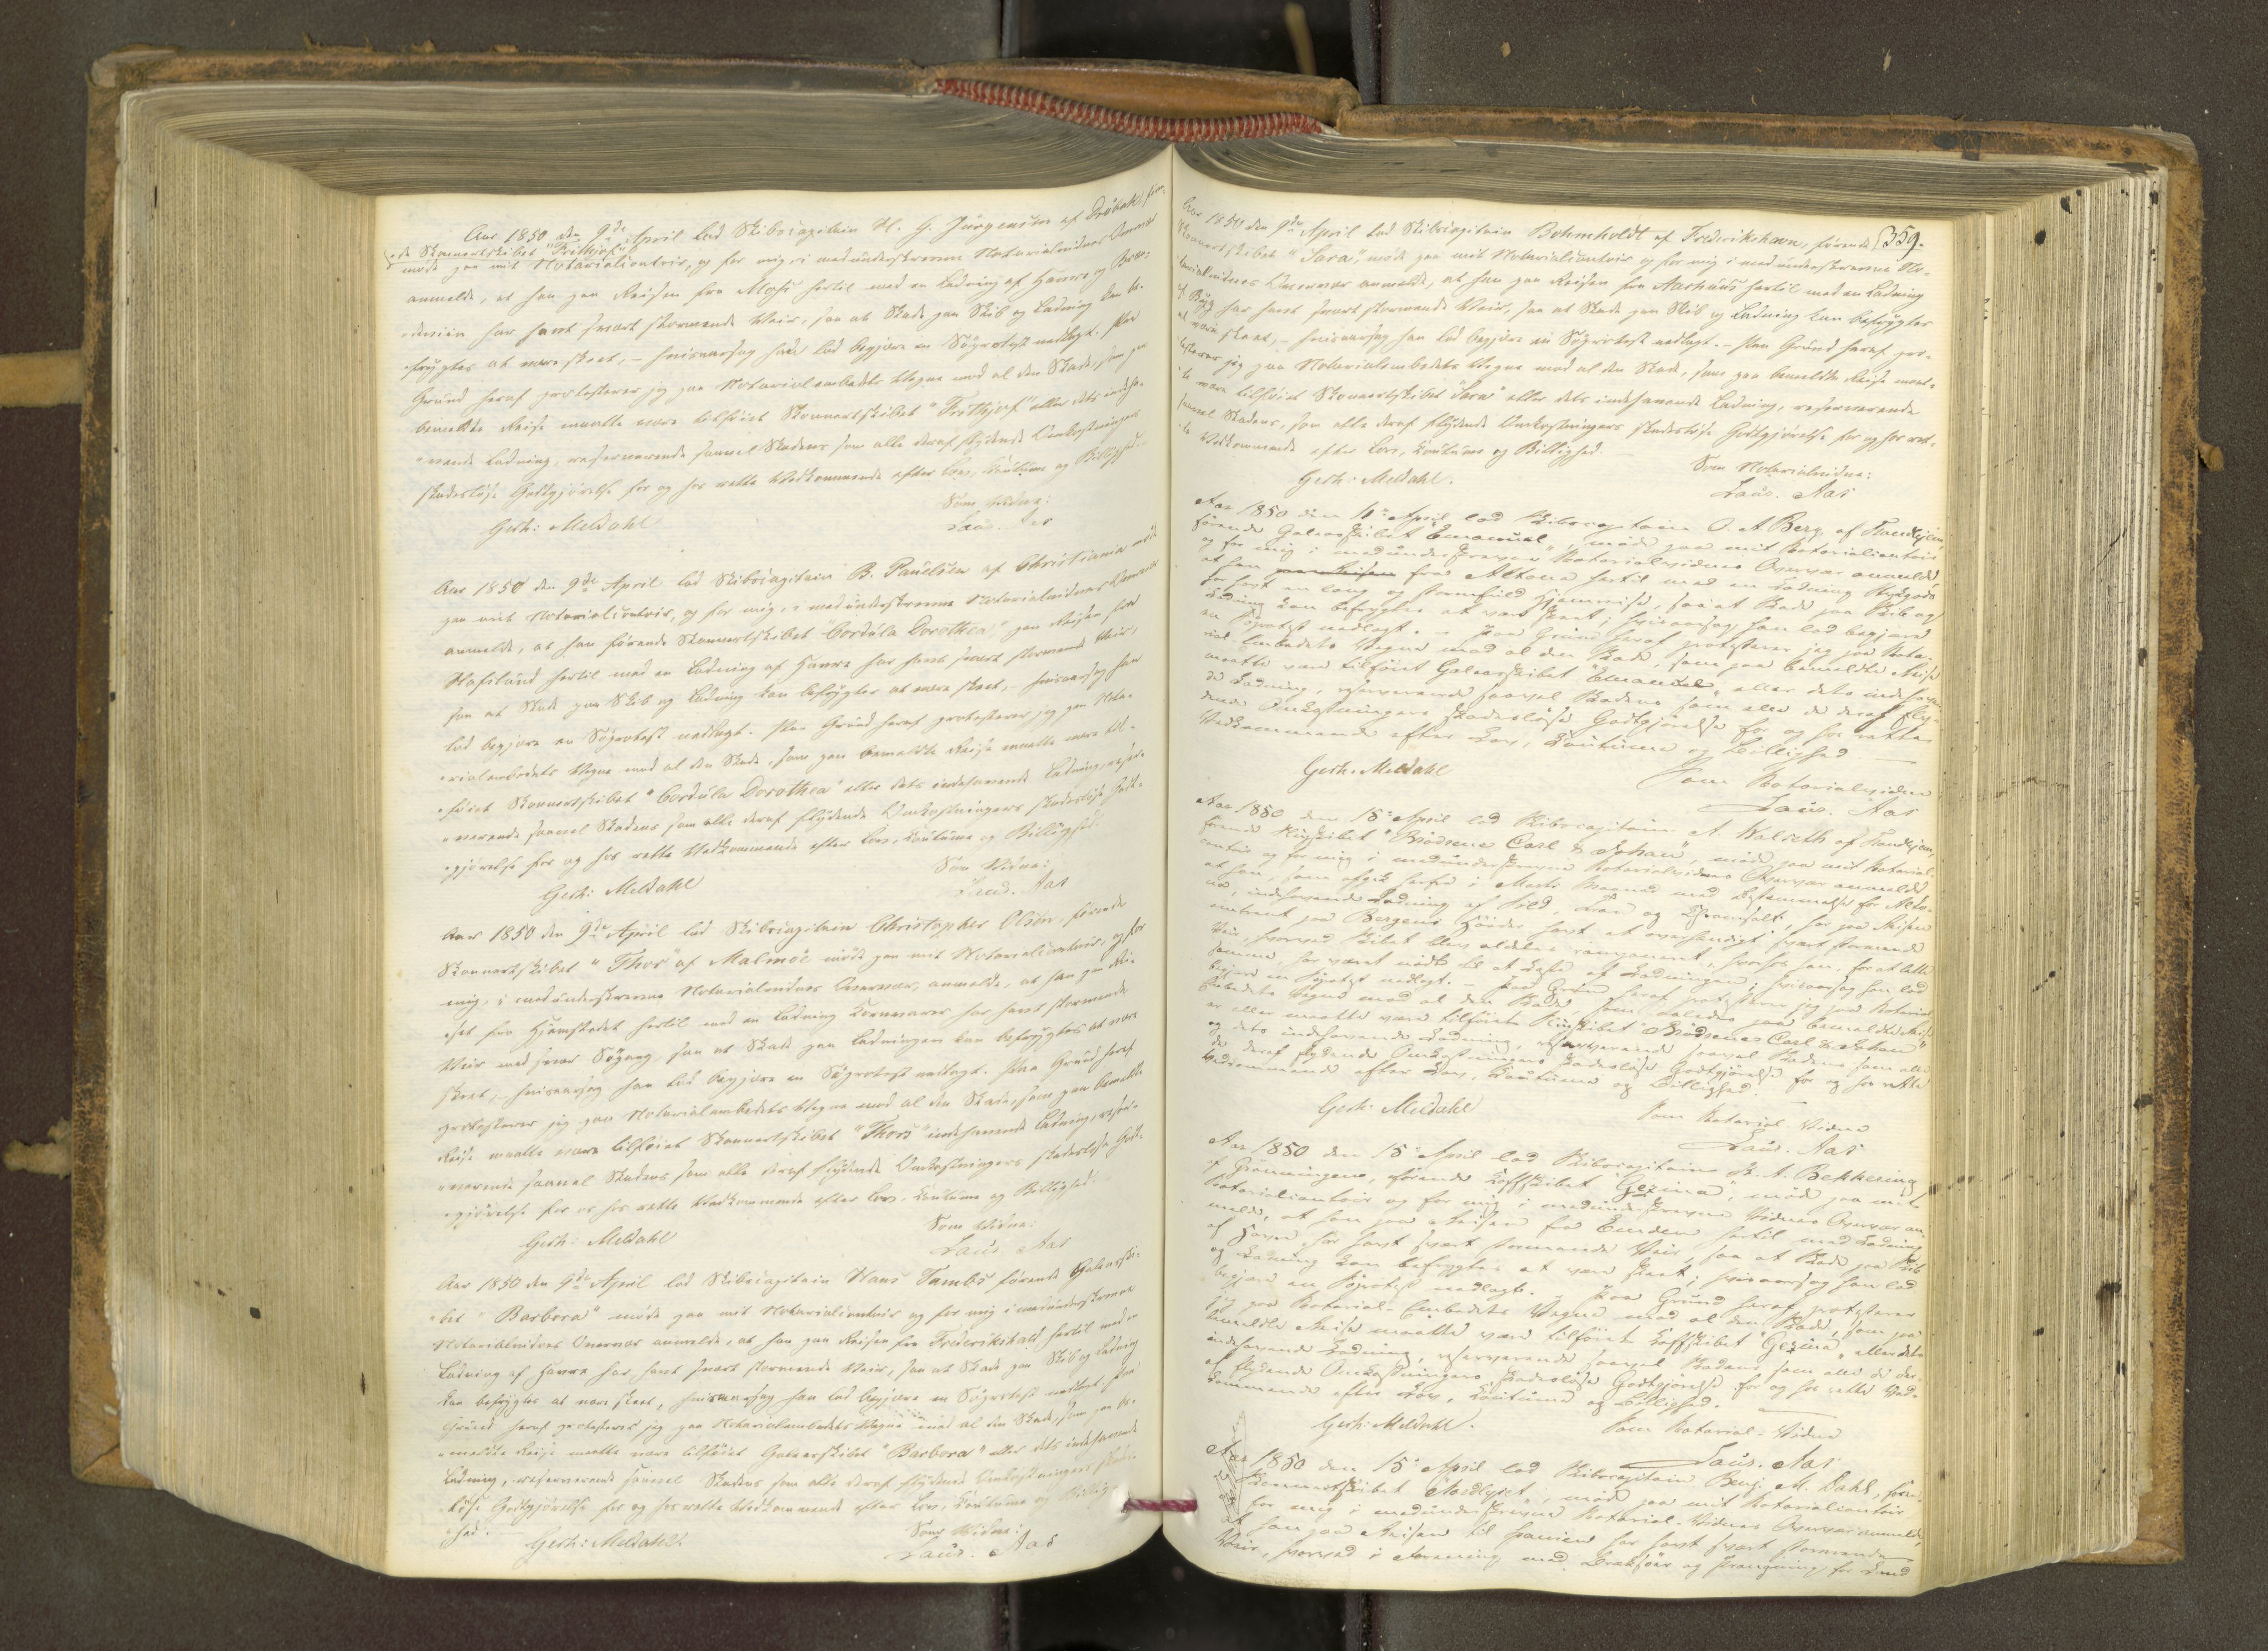 Aar 1850 den 9de April lod Skibscapitain H. G. Jürgensen af Dröbak för-
ende Skonnertskibet "Frithjof"
möde paa mit Notarialcontoir, og for mig, i medunderskrevne Notarialvidnes Overvær
anmelde, at han paa Reisen fra Moss hertil med en Ladning af Havre og Bræn-
deviin har havt svært stormende Veir, saa at Skade paa Skib og Ladning kan be-
frygtes at være skeet, – hvisaarsag han lod begjære en Söprotest nedlagt. Paa
Grund heraf protesterer jeg paa Notarialembedets Vegne mod al den Skade, som paa
bemeldte Reise maatte være tilföiet Skonnertskibet "Frithjof" eller dets indeha-
vende Ladning, reserverende saavel Skadens som alle deraf flydende Omkostningers
skadeslöse Godtgjörelse for og hos rette Vedkommende efter Lov, Coutume og Billighed.
Som Vidne:
Gerh: Meldahl
Laur. Aas
Aar 1850 den 9de April lod Skibscapitain B. Paulsen af Christiania möde
paa mit Notarialcontoir, og for mig, i medunderskrevne Notarialvidnes Overvær
anmelde, at han förende Skonnertskibet "Cordula Dorothea", paa Reisen fra
Hafslund hertil med en Ladning af Havre har havt svært stormende Veir,
saa at Skade paa Skib og Ladning kan befrygtes at være skeet, – hvisaarsag han
lod begjære en Söprotest nedlagt. Paa Grund heraf protesterer jeg paa Nota-
rialembedets Vegne mod al den Skade, som paa bemeldte Reise maatte være til-
föiet Skonnertskibet "Cordula Dorothea" eller dets indehavende Ladning, reser-
verende saavel Skadens som alle deraf flydende Omkostningers skadeslöse Godt-
gjörelse for og hos rette Vedkommende efter Lov, Coutume og Billighed.
Som Vidne:
Gerh: Meldahl
Laur. Aas
Aar 1850 den 9de April lod Skibscapitain Christopher Olsen, förende
Skonnertskibet "Thor" af Malmöe möde paa mit Notarialcontoir, og for
mig, i medunderskrevne Notarialvidnes Overvær, anmelde, at han paa Rei-
sen fra Hjemstedet hertil med en Ladning Kornvarer har havt stormende
Veir med svær Sögang, saa at Skade paa Ladningen kan befrygtes at være
skeet, – hvisaarsag han lod begjære en Söprotest nedlagt. Paa Grund heraf
protesterer jeg paa Notarialembedets Vegne mod al den Skade, som paa bemeldte
Reise maatte være tilföiet Skonnertskibet "Thors" indehavende Ladning, reser-
verende saavel Skadens som alle deraf flydende Omkostningers skadeslöse Godt-
gjörelse for og hos rette Vedkommende efter Lov, Coutume og Billighed.
Som Vidne:
Gerh: Meldahl
Laur. Aas
Aar 1850 den 9de April lod Skibscapitain Hans Tambs förende Galeasski-
bet "Barbora" möde paa mit Notarialcontoir og for mig i medunderskrevne
Notarialvidnes Overvær anmelde, at han paa Reisen fra Frederikshald hertil med en
Ladning af Havre har havt svært stormende Veir, saa at Skade paa Skib og Ladning
kan befrygtes at være skeet, hvisaarsag han lod begjære en Söprotest nedlagt. Paa
Grund heraf protesterer jeg paa Notarialembedets Vegne mod al den Skade, som paa be-
meldte Reise maatte være tilföiet Galeasskibet "Barbora" eller dets indehavende
Ladning, reserverende saavel Skadens som alle deraf flydende Omkostningers skades-
löse Godtgjörelse for og hos rette Vedkommende efter Lov, Coutume og Billig-
hed.
Som Vidne:
Gerh: Meldahl.
Laur. Aas
359.
Aar 1850 den 9de April lod Skibscapitain Bohmholdt af Frederikshavn, förende
Skonnertskibet "Sara", möde paa mit Notarialcontoir og for mig i medunderskrevne No-
tarialvidnes Overvær anmelde, at han paa Reisen fra Aarhuus hertil med en Ladning
af Byg har havt svært stormende Veir, saa at Skade paa Skib og Ladning kan befrygtes
at være skeet, – hvisaarsag han lod begjære en Söprotest nedlagt. – Paa Grund heraf pro-
testerer jeg paa Notarialembedets Vegne mod al den Skade, som paa bemeldte Reise maat-
te være tilföiet Skonnertskibet "Sara" eller dets indehavende Ladning, reserverende
saavel Skadens, som alle deraf flydende Omkostningers skadeslöse Godtgjörelse for og hos ret-
te Vedkommende efter Lov, Coutume og Billighed. –
Som Notarialvidne:
Gerh: Meldahl.
Laur. Aas
Aar 1850 den 11te April lod Skibscapitain O. A. Berg af Trondhjem,
förende Galeasskibet "Emanuel", möde paa mit Notarialcontoir
og for mig i medunderskrevne Notarialvidnes Overvær anmelde,
at han paa Reisen fra Altona hertil med en Ladning Stykgods
har havt en lang og stormfuld Hjemreise, saa at Skade paa Skib og
Ladning kan befrygtes at være skeet; hvisaarsag han lod begjære
en Söprotest nedlagt. – Paa Grund heraf protesterer jeg paa Nota-
rial Embedets Vegne mod al den Skade, som paa bemeldte Reise
maatte være tilföiet Galeasskibet "Emanuel" eller dets indehaven-
de Ladning, reserverende saavel Skadens som alle de deraf fly-
dende Omkostningers skadeslöse Godtgjörelse for og hos rette
Vedkommende efter Lov, Coutume og Billighed –
Gerh: Meldahl
Som Notarialvidne
Laur. Aas
Aar 1850 den 15de April lod Skibscapitain A. Walseth af Trondhjem,
förende Skibet "Brödrene Carl & Johan", möde paa mit Notarial-
contoir og for mig i medunderskrevne Notarialvidnes Overvær anmelde,
at han, som afgik herfra i Marts Maaned med Bestemmelse for Alto-
na, indehavende Ladning af Sild, Tran og, har paa Reisen
omtrent paa Bergens Höide havt et overhændigt svært stormende
Veir, hvorved Skibet blev aldeles ramponeret, hvorfor han, for at lette
samme, har været nödt til at kaste af Ladningen; hvisaarsag han lod
begjære en Söprotest nedlagt. – Paa Grund heraf protesterer jeg paa Notarial-
Embedets Vegne mod al den Skade, som saaledes paa bemeldte Reise
er eller maatte være tilföiet Skibet "Brödrene Carl & Johan"
og dets indehavende Ladning, reserverende saavel Skadens som alle
de deraf flydende Omkostningers skadeslöse Godtgjörelse for og hos rette
Vedkommende efter Lov, Coutume og Billighed.
Gerh: Meldahl
Som Notarial-Vidne
Laur. Aas
Aar 1850 den 15de April lod Skibscapitain A. Bekkering
af Grønningen, förende Koffskibet "Gezina", möde paa mit
Notarialcontoir og for mig i medunderskrevne Vidnes Overvær an-
melde, at han paa Reisen fra Emden hertil med Ladning
af Havre har havt svært stormende Veir, saa at Skade paa Skib
og Ladning kan befrygtes at være skeet; hvisaarsag han lod
begjære en Söprotest nedlagt. – Paa Grund heraf protesterer
jeg paa Notarial-Embedets Vegne mod al den Skade, som paa
bemeldte Reise maatte være tilföiet Koffskibet "Gezina" eller dets
indehavende Ladning, reserverende saavel Skadens som alle de der-
af flydende Omkostningers skadeslöse Godtgjörelse for og hos rette Ved-
kommende efter Lov, Coutume og Billighed.
Gerh: Meldahl.
Som Notarial-Vidne
Laur. Aas
Aar 1850 den 15de April lod Skibscapitain Benj. M. Dahl, för-
Skonnertskibet "Nordlyset", möde paa mit Notarialcontoir
for mig i medunderskrevne Notarial-Vidnes Overvær anmelde,
at han paa Reisen til Spanien har havt svært stormende
Veir, hvorved i Forening med Braksöer og for Lind